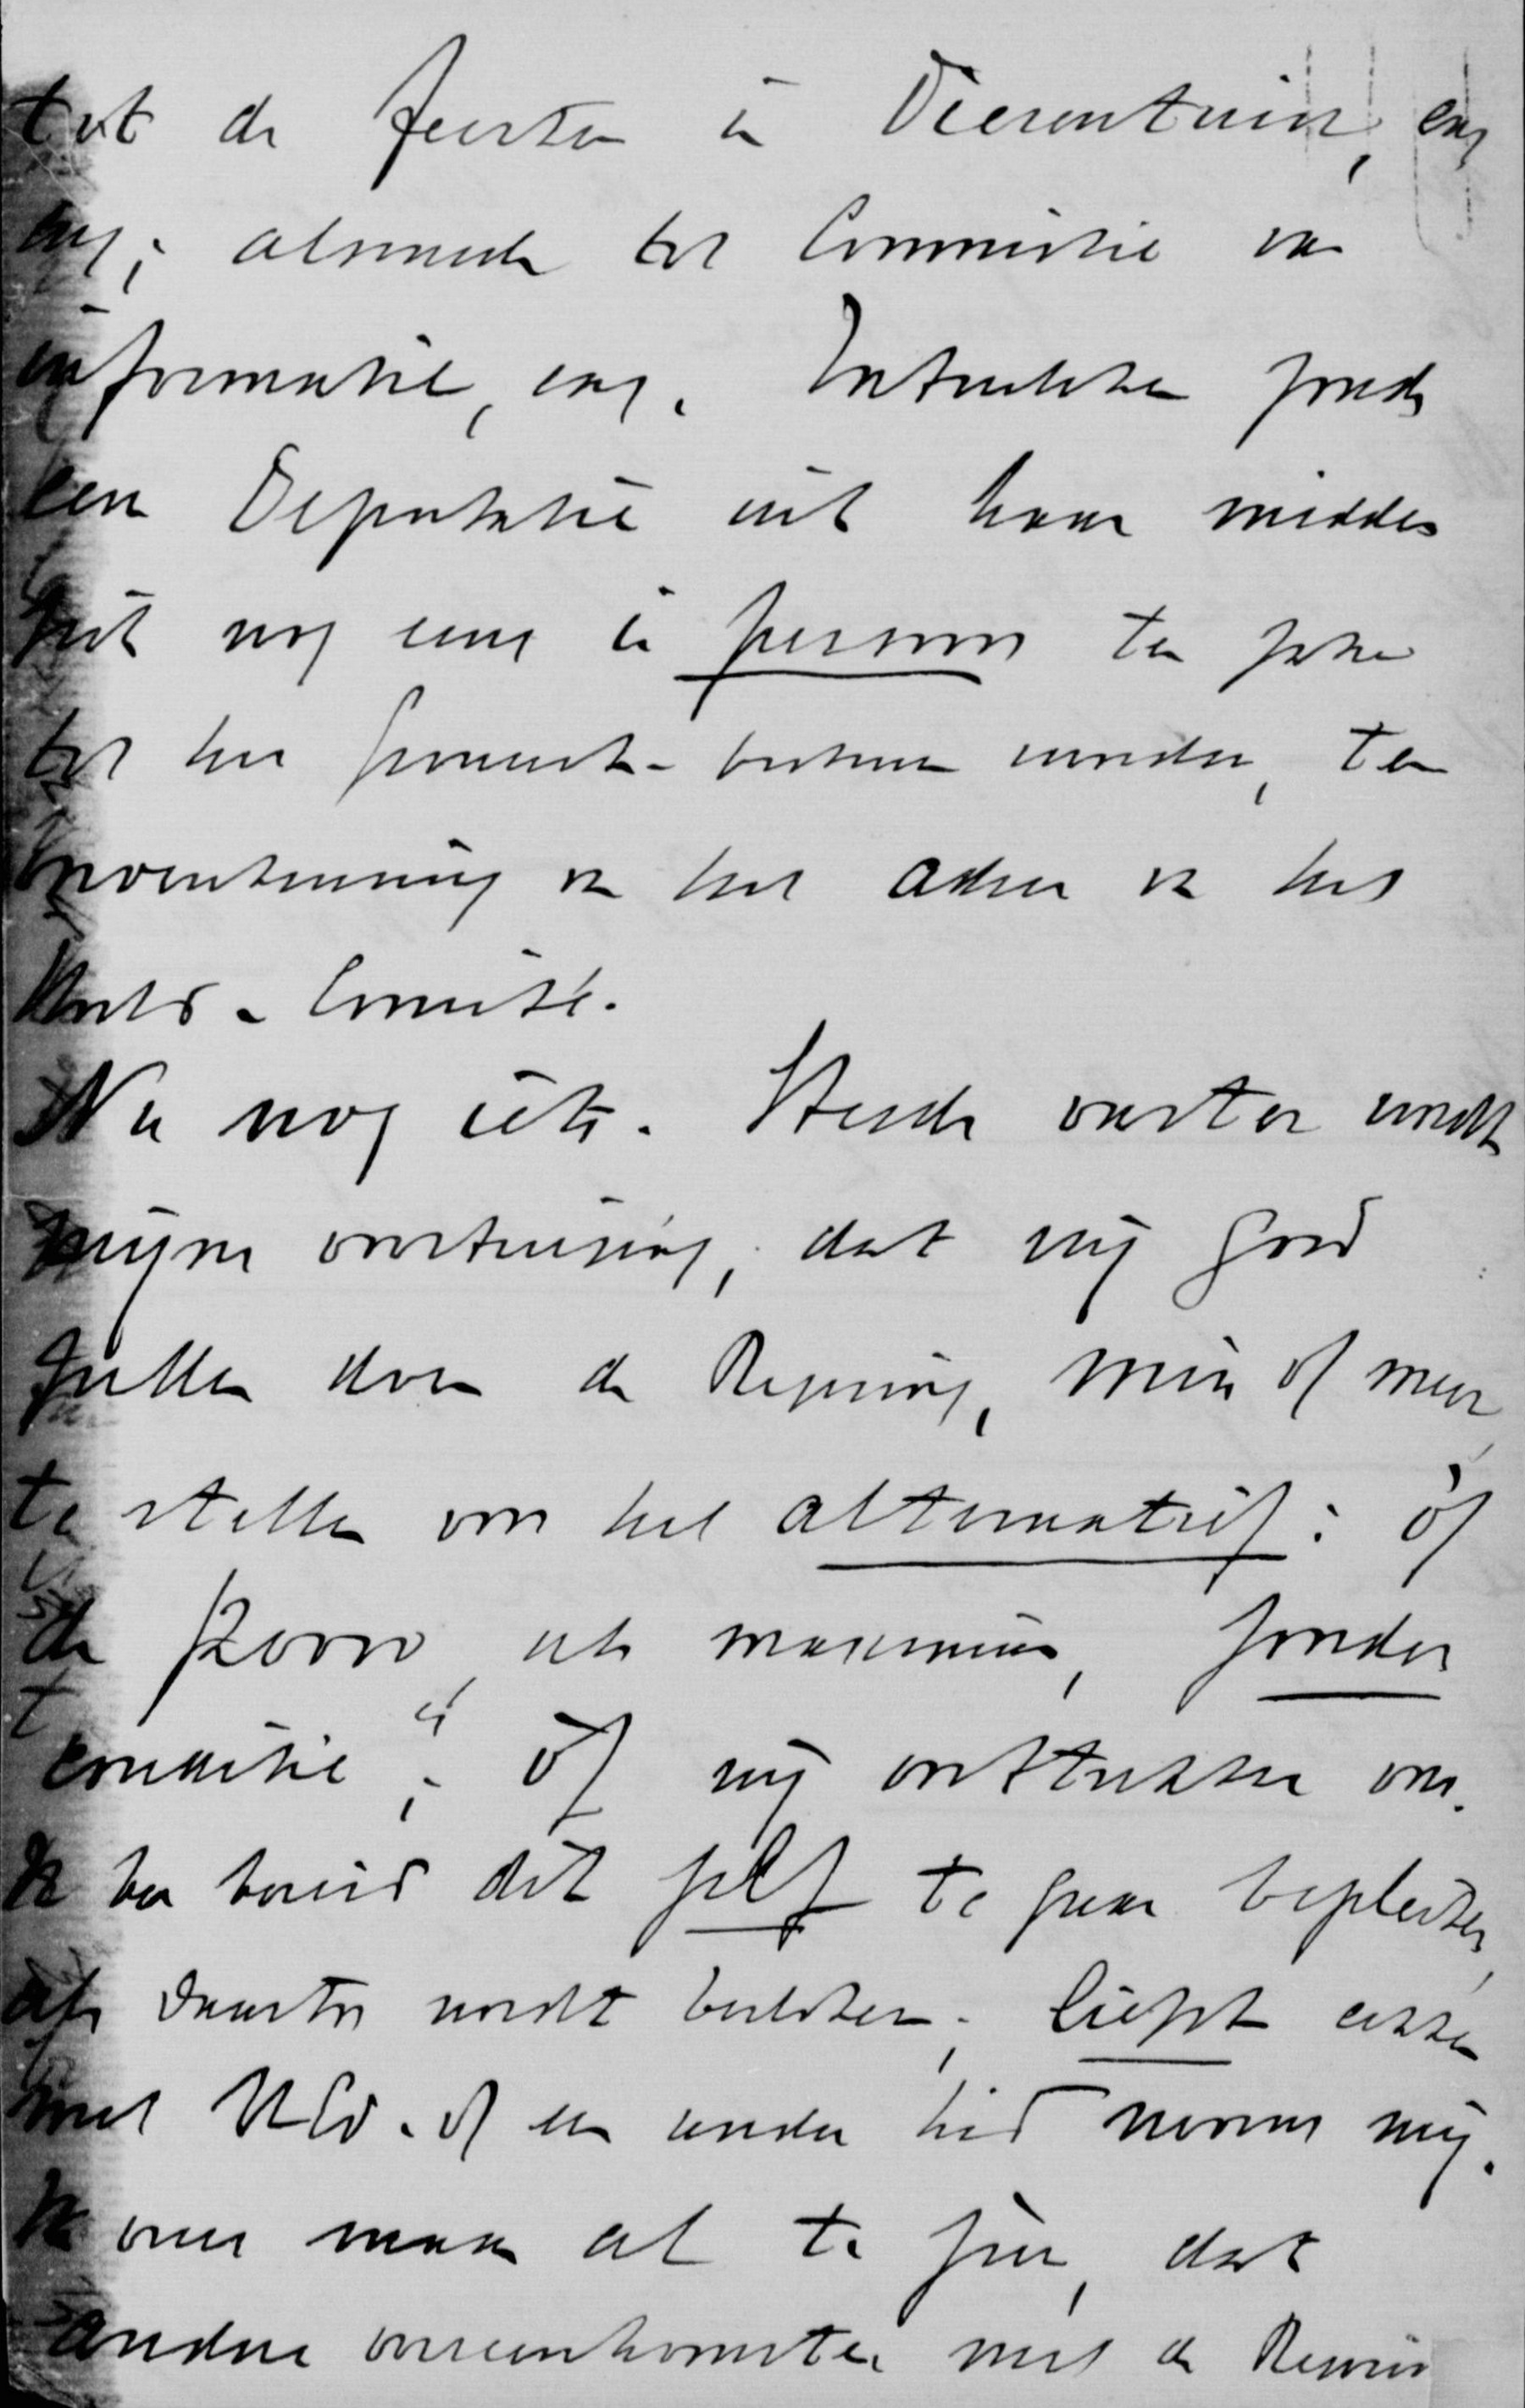 tot de feesten in Dierentuin, enz
enz; alsmede tot Commissie van
informatie, enz. Intusschen zond
een Deputatie uit haar midden
zich nog eens in persoon ten zake
tot het Gemeente-bestuur wenden, ter
ondersteuning van het adres van het
Comité.
Nu nog iets. Steeds vaster wordt
mijne overtuiging, dat wij goed
zullen doen de Regering, min of meer
te stellen voor het alternatief: òf
de als maximum, zonder
conditie"; òf wij onttrekken ons.
Ik ben bereid dit zelf te gaan bepleiten,
als daartoe wordt besloten; liefst echter
met UEd. of een ander lid nevens mij.
Ik voorzie maar al te zeer, dat
andere overeenkomsten met de